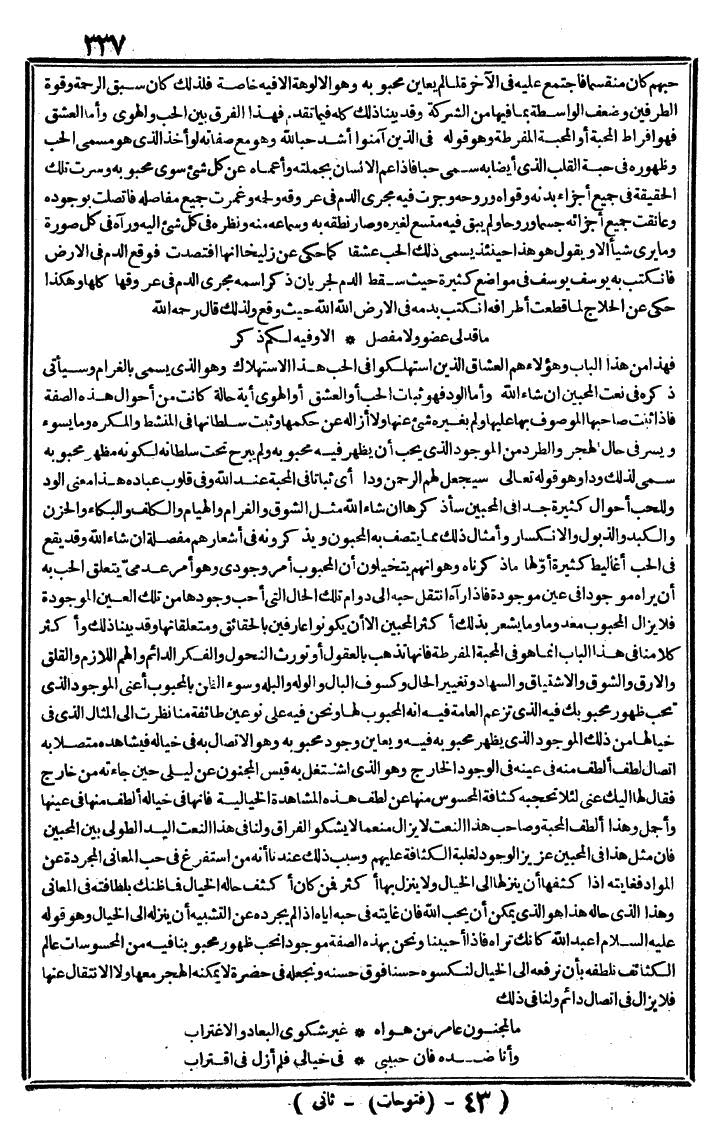 ٣٣٧
حبهم كان منقسما فاجتمع عليه فى الآخرة لما لم يعاين محبوبه وهو الالوهة الافيه خاصة فلذلك كان سبق الرحمة وقوة
الطرفين وضعف الواسطة بما فيها من الشركة وقد بينا ذلك كله فيما تقدم فهذا الفرق بين الحب والهوى وأما العشق
فهو افراط المحبة أو المحبة المفرطة وهو قوله فى الذين آمنوا أشد حبا لله وهو مع صفاته لو أخذ الذى هو مسمى الحب
وظهوره فى حبة القلب الذى أيضا به سمى حبا فاذا عم الانسان بجملته وأعماه عن كل شئ سوى محبوبه وسرت تلك
الحقيقة فى جميع أجزاء بدنه وقواه وروحه وجرت فيه مجرى الدم فى عروقه ولحمه وغمرت جميع مفاصله فاتصلت بوجوده
وعانقت جميع أجزائه جسما وروحا ولم يبق فيه متسع لغيره وصار نطقه به وسماعه منه ونظره فى كل شئ اليه ورآه فى كل صورة
وما يرى شيأ الا و يقول هو هذا حينئذ يسمى ذلك الحب عشقا كما حكى عن زليخا انها افتصدت فوقع الدم فى الارض
فانكتب به يوسف يوسف فى مواضع كثيرة حيث سقط الدم لجريان ذكر اسمه مجرى الدم فى عروقها كلها وهكذا
حكى عن الحلاج لما قطعت أطرافه انكتب بدمه فى الارض الله الله حيث وقع ولذلك قال رحمه الله
ما قد لى عضو ولا مفصل * الا وفيه لكم ذكر
فهذا من هذا الباب وهؤلاء هم العشاق الذين استهلكوا فى الحب هذا الاستهلاك وهو الذى يسمى بالغرام وسيأتى
ذكره فى نعت المحبين ان شاء الله وأما الود فهو ثبات الحب أو العشق أو الهوى أية حالة كانت من أحوال هذه الصفة
فاذا ثبت صاحبها الموصوف بها عليها ولم يغيره شئ عنها ولا أزاله عن حكمها وثبت سلطانها فى المنشط والمكره وما يسوء
ويسر فى حال الهجر والطرد من الموجود الذى يحب أن يظهر فيه محبوبه ولم يبرح تحت سلطانه لكونه مظهر محبوبه
سمى لذلك ودا وهو قوله تعالى سيجعل لهم الرحمن ودا أى ثباتا فى المحبة عند الله وفى قلوب عباده هذا معنى الود
وللحب أحوال كثيرة جدا فى المحبين سأذكرها ان شاء الله مثل الشوق والغرام والهيام والكلف والبكاء والحزن
والكبد والذبول والانكسار وأمثال ذلك مما يتصف به المحبون ويذكرونه فى أشعارهم مفصلة ان شاء الله وقد يقع
فى الحب أغاليط كثيرة أولها ما ذكرناه وهو انهم يتخيلون أن المحبوب أمر وجودى وهو أمر عدمى يتعلق الحب به
أن يراه موجودا فى عين موجودة فاذا رآه انتقل حبه الى دوام تلك الحال التى أحب وجودها من تلك العين الموجودة
فلا يزال المحبوب معدوما وما يشعر بذلك أكثر المحبين الا أن يكونوا عارفين بالحقائق ومتعلقاتها وقد بينا ذلك وأكثر
كلامنا فى هذا الباب انما هو فى المحبة المفرطة فانها تذهب بالعقول أو تورث النحول والفكر الدائم والهم اللازم والقلق
والارق والشوق والاشتياق والسهاد وتغيير الحال وكسوف البال والوله والبله وسوء الظن بالمحبوب أعنى الموجود الذى
تحب ظهور محبوبك فيه الذى تزعم العامة فيه انه المحبوب لها ونحن فيه على نوعين طائفة منا نظرت الى المثال الذى فى
خيالها من ذلك الموجود الذى يظهر محبوبه فيه ويعاين وجود محبوبه وهو الاتصال به فى خياله فيشاهده متصلا به
اتصال لطف ألطف منه فى عينه فى الوجود الخارج وهو الذى اشتغل به قيس المجنون عن ليلى حين جاءته من خارج
فقال لها اليك عنى لئلا تحجبه كثافة المحسوس منها عن لطف هذه المشاهدة الخيالية فانها فى خياله ألطف منها فى عينها
وأجمل وهذا ألطف المحبة وصاحب هذا النعت لا يزال منعما لا يشكو الفراق ولنا فى هذا النعت اليد الطولى بين المحبين
فان مثل هذا فى المحبين عزيز الوجود لغلبة الكثافة عليهم وسبب ذلك عندنا أنه من استفرغ فى حب المعانى المجردة عن
المواد فغايته اذا كثفها أن ينزلها الى الخيال ولا ينزل بها أكثر فمن كان أكثف حاله الخيال فما ظنك بلطافته فى المعانى
وهذا الذى حاله هذا هو الذى يمكن أن يحب الله فان غايته فى حبه اياه اذا لم يجرده عن التشبيه أن ينزله الى الخيال وهو قوله
عليه السلام اعبد الله كانك تراه فاذا أحببنا ونحن بهذه الصفة موجودا نحب ظهور محبوبنا فيه من المحسوسات عالم
الكثائف نلطفه بأن نرفعه الى الخيال لنكسوه حسنا فوق حسنه ونجعله فى حضرة لا يمكنه الهجر معها ولا الانتقال عنها
فلا يزال فى اتصال دائم ولنا فى ذلك
ما لمجنون عامر من هواه * غير شكوى البعاد والاغتراب
وأنا ضده فان حبيبى * فى خيالى فلم أزل فى اقتراب
( ٤٣ - (فتوحات) - ثانى )